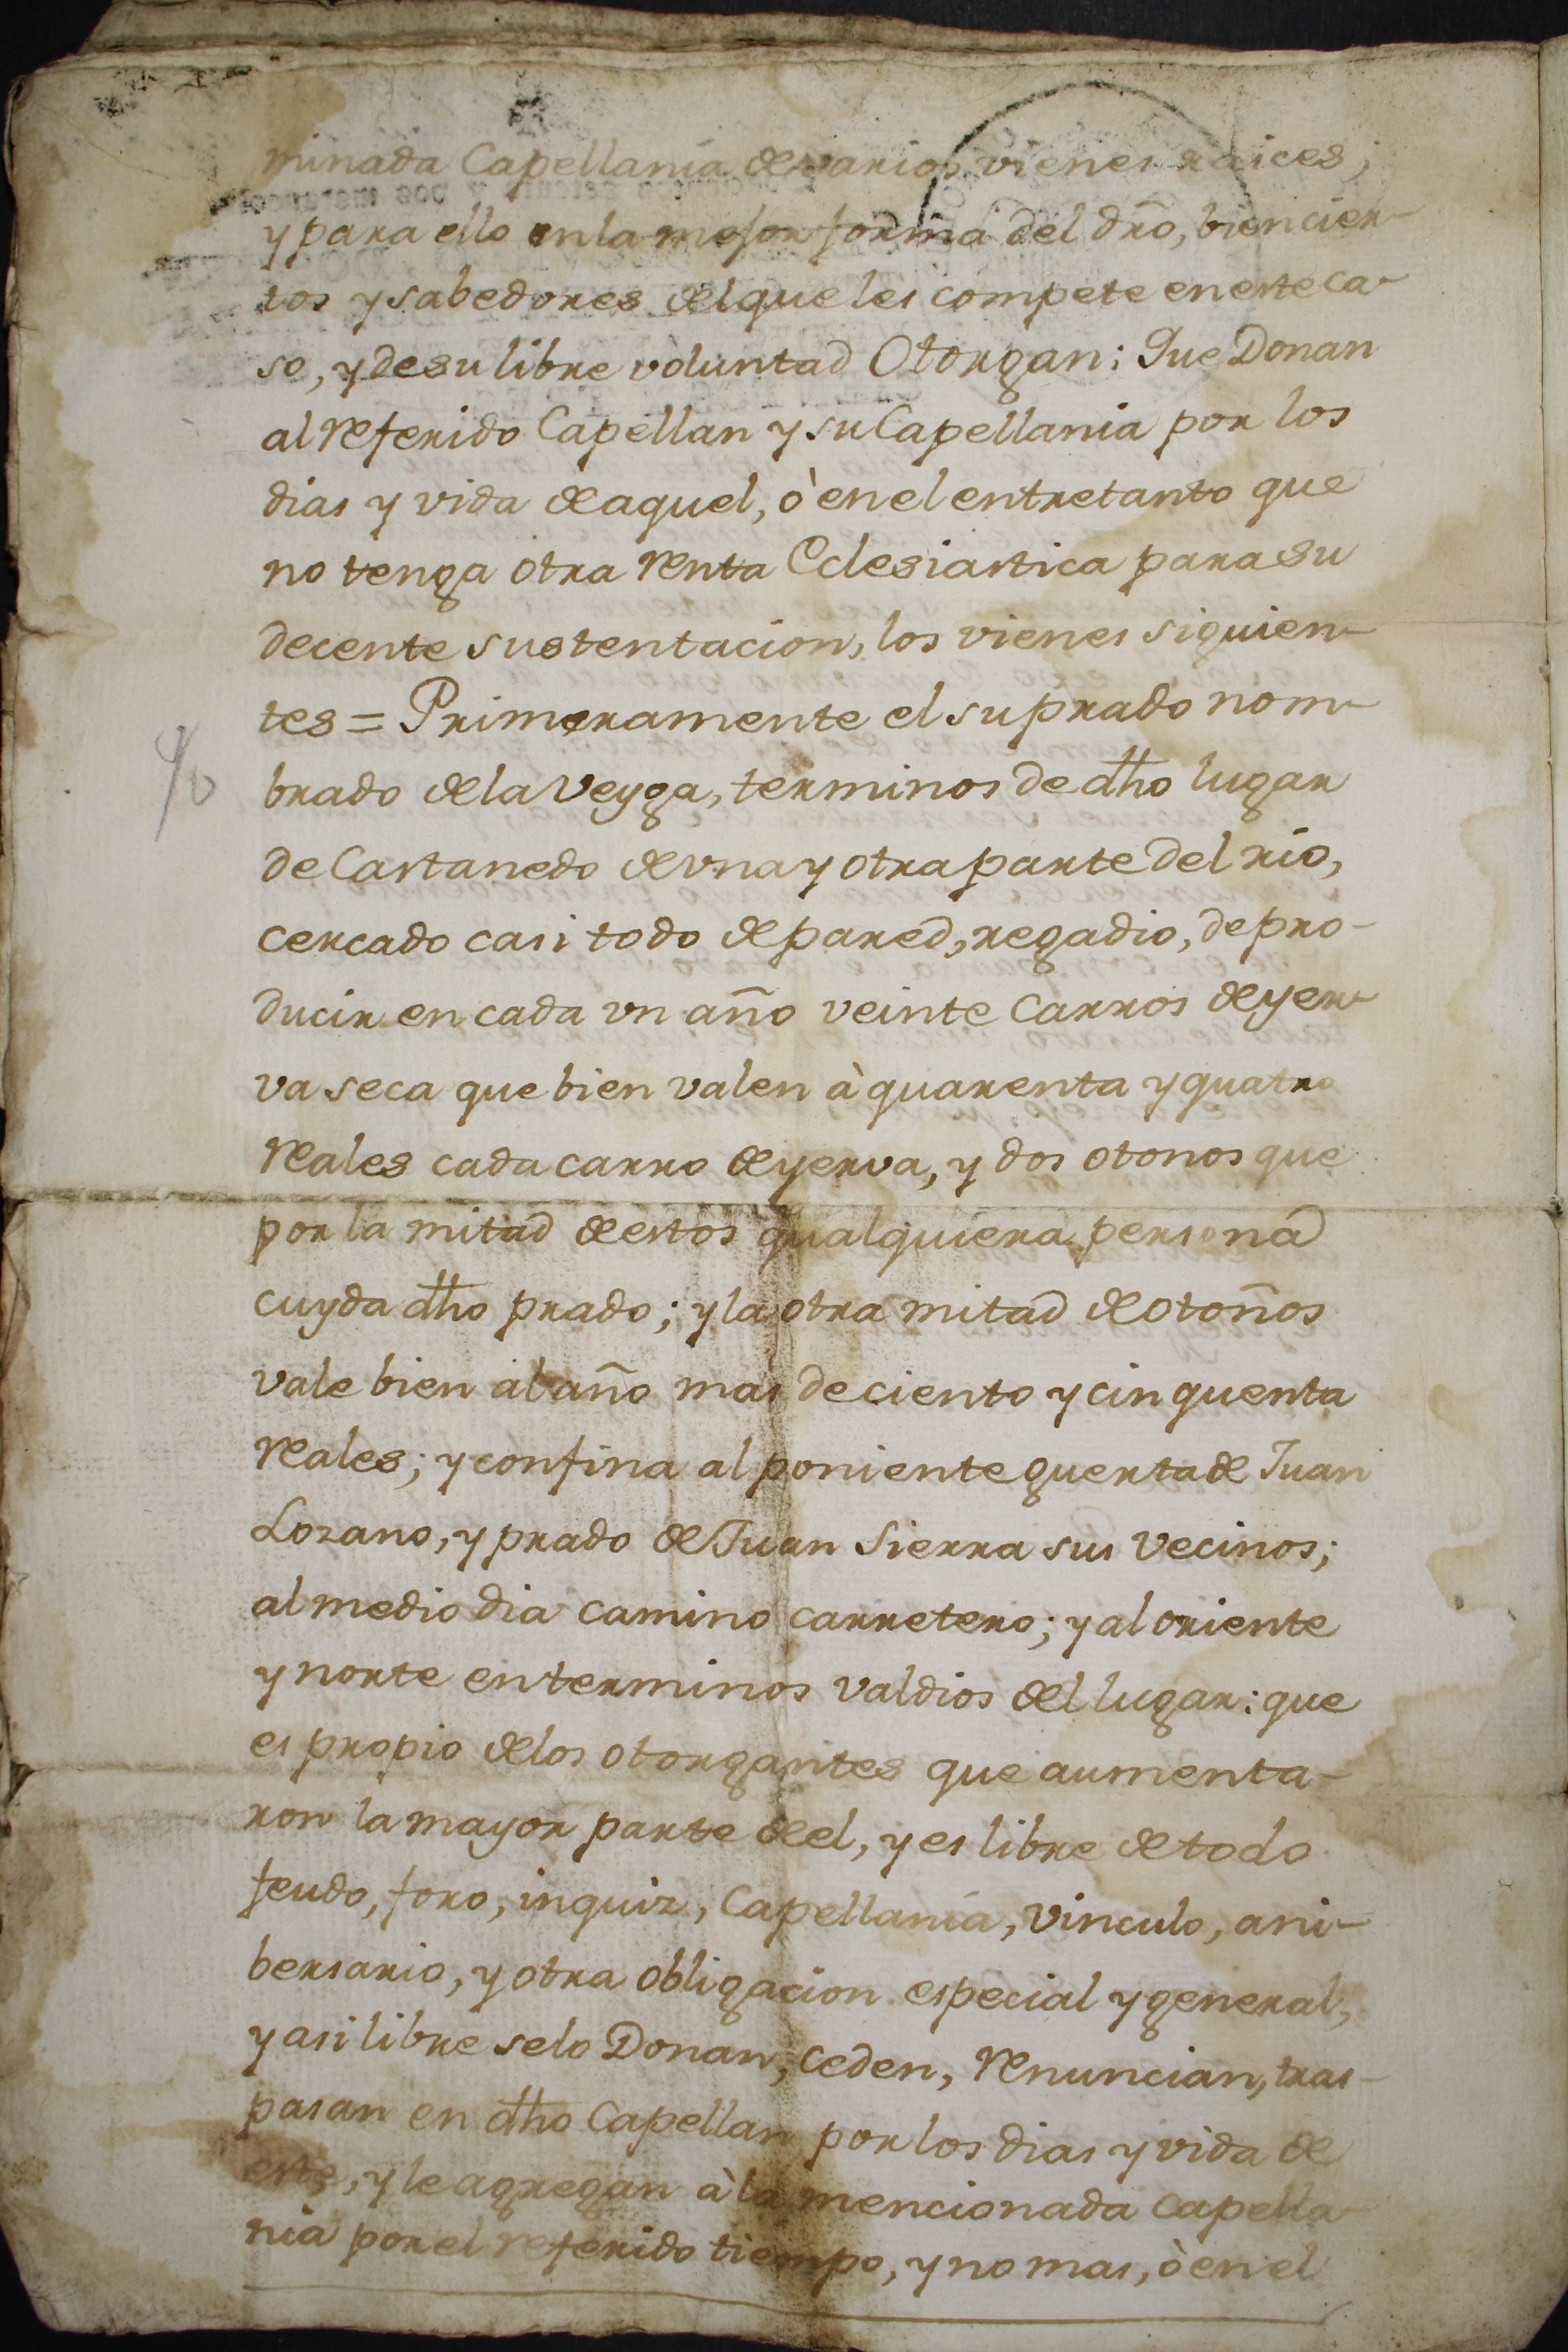 minada Capellanía de varios vienes raices;
y para ello en la mejor forma del dro, bien cier-
tos y sabedores del que les compete en este ca-
so, y de su libre voluntad Otorgan: Que Donan
al referido Capellan y su Capellania por los
dias y vida de aquel, ò en el entretanto que
no tenga otra renta Eclesiastica para su
decente sustentacion, los vienes siguien-
tes = Primeramente el su prado nom-
brado de la Veyga, terminos de dho lugar
de Castanedo de vna y otra parte del río,
cercado casi todo de pared, regadio, de pro-
ducir en cada vn año veinte carros de yer-
va seca que bien valen à quarenta y quatro
reales cada carro de yerva, y dos otonos que
por la mitad de estos qualquiera persona
cuyda dho prado; y la otra mitad de otoños
vale bien al año mas de ciento y cinquenta
reales; y confina al poniente guerta de Juan
Lozano, y prado de Juan Sierra sus vecinos;
al medio dia camino carretero; y al oriente
y norte en terminos valdios del lugar: que
es propio de los otorgantes que aumenta-
ron la mayor parte de el, y es libre de todo
feudo, foro, inquiz, Capellanía, vinculo, ani-
bersario, y otra obligacion especial y general,
y asi libre se lo Donan, ceden, renuncian, tras-
pasan en dho Capellan por los dias y vida de
este, y le agregan à la mencionada capella
nia por el referido tiempo, y no mas, ò en el